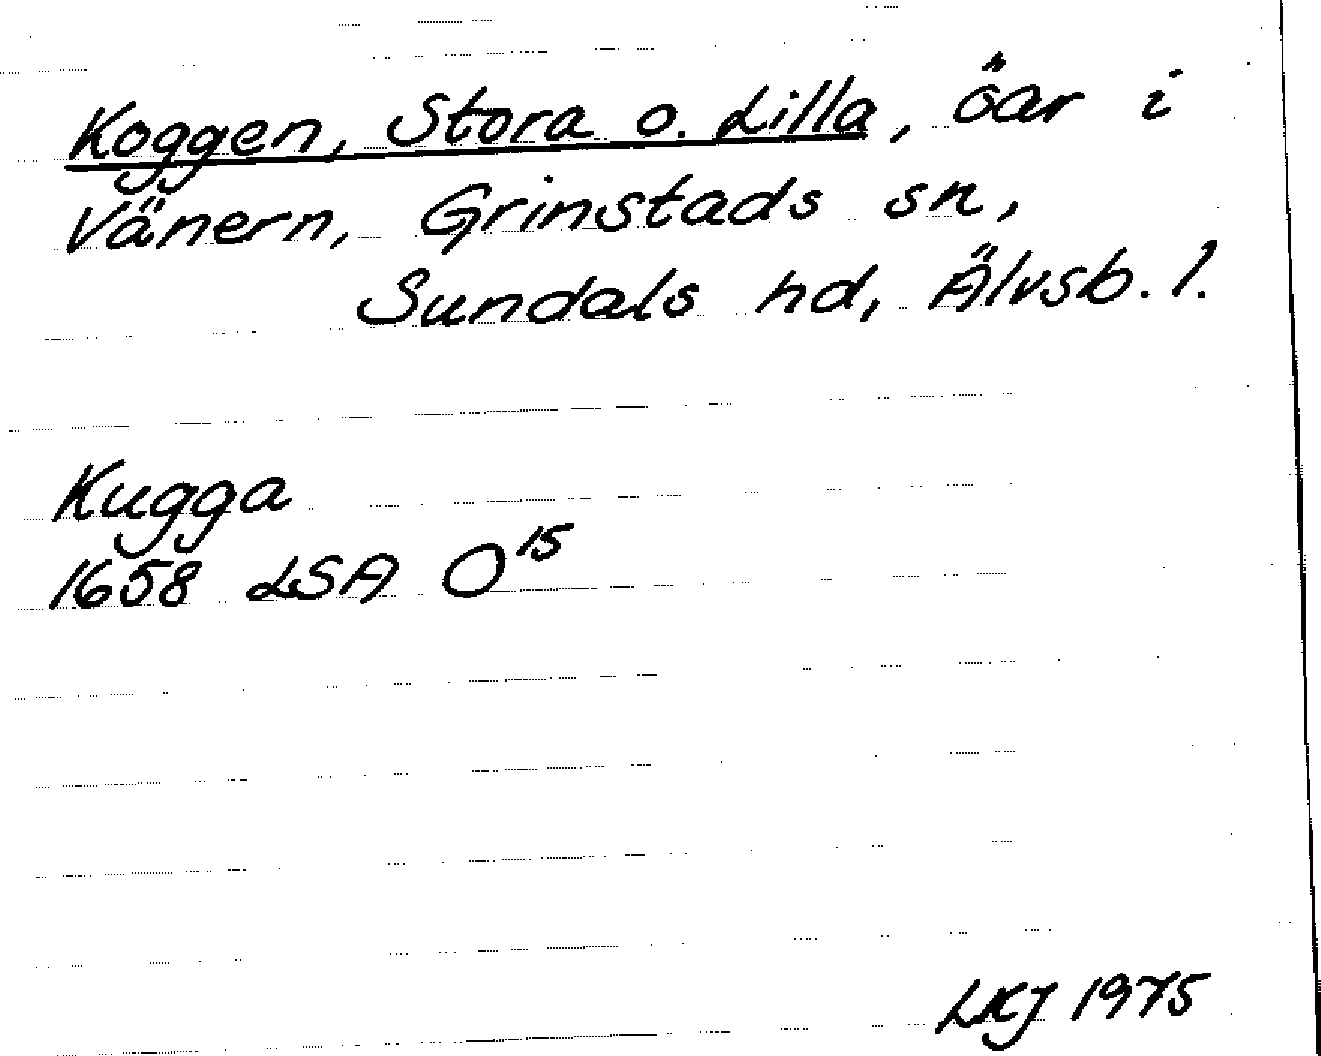 Koggen, Stora o. Lilla, öar i
Vänern, Grinstads sn,
Sundals hd, Älvsb. l.
Kugga
1658 LSA O 15
LKJ 1975